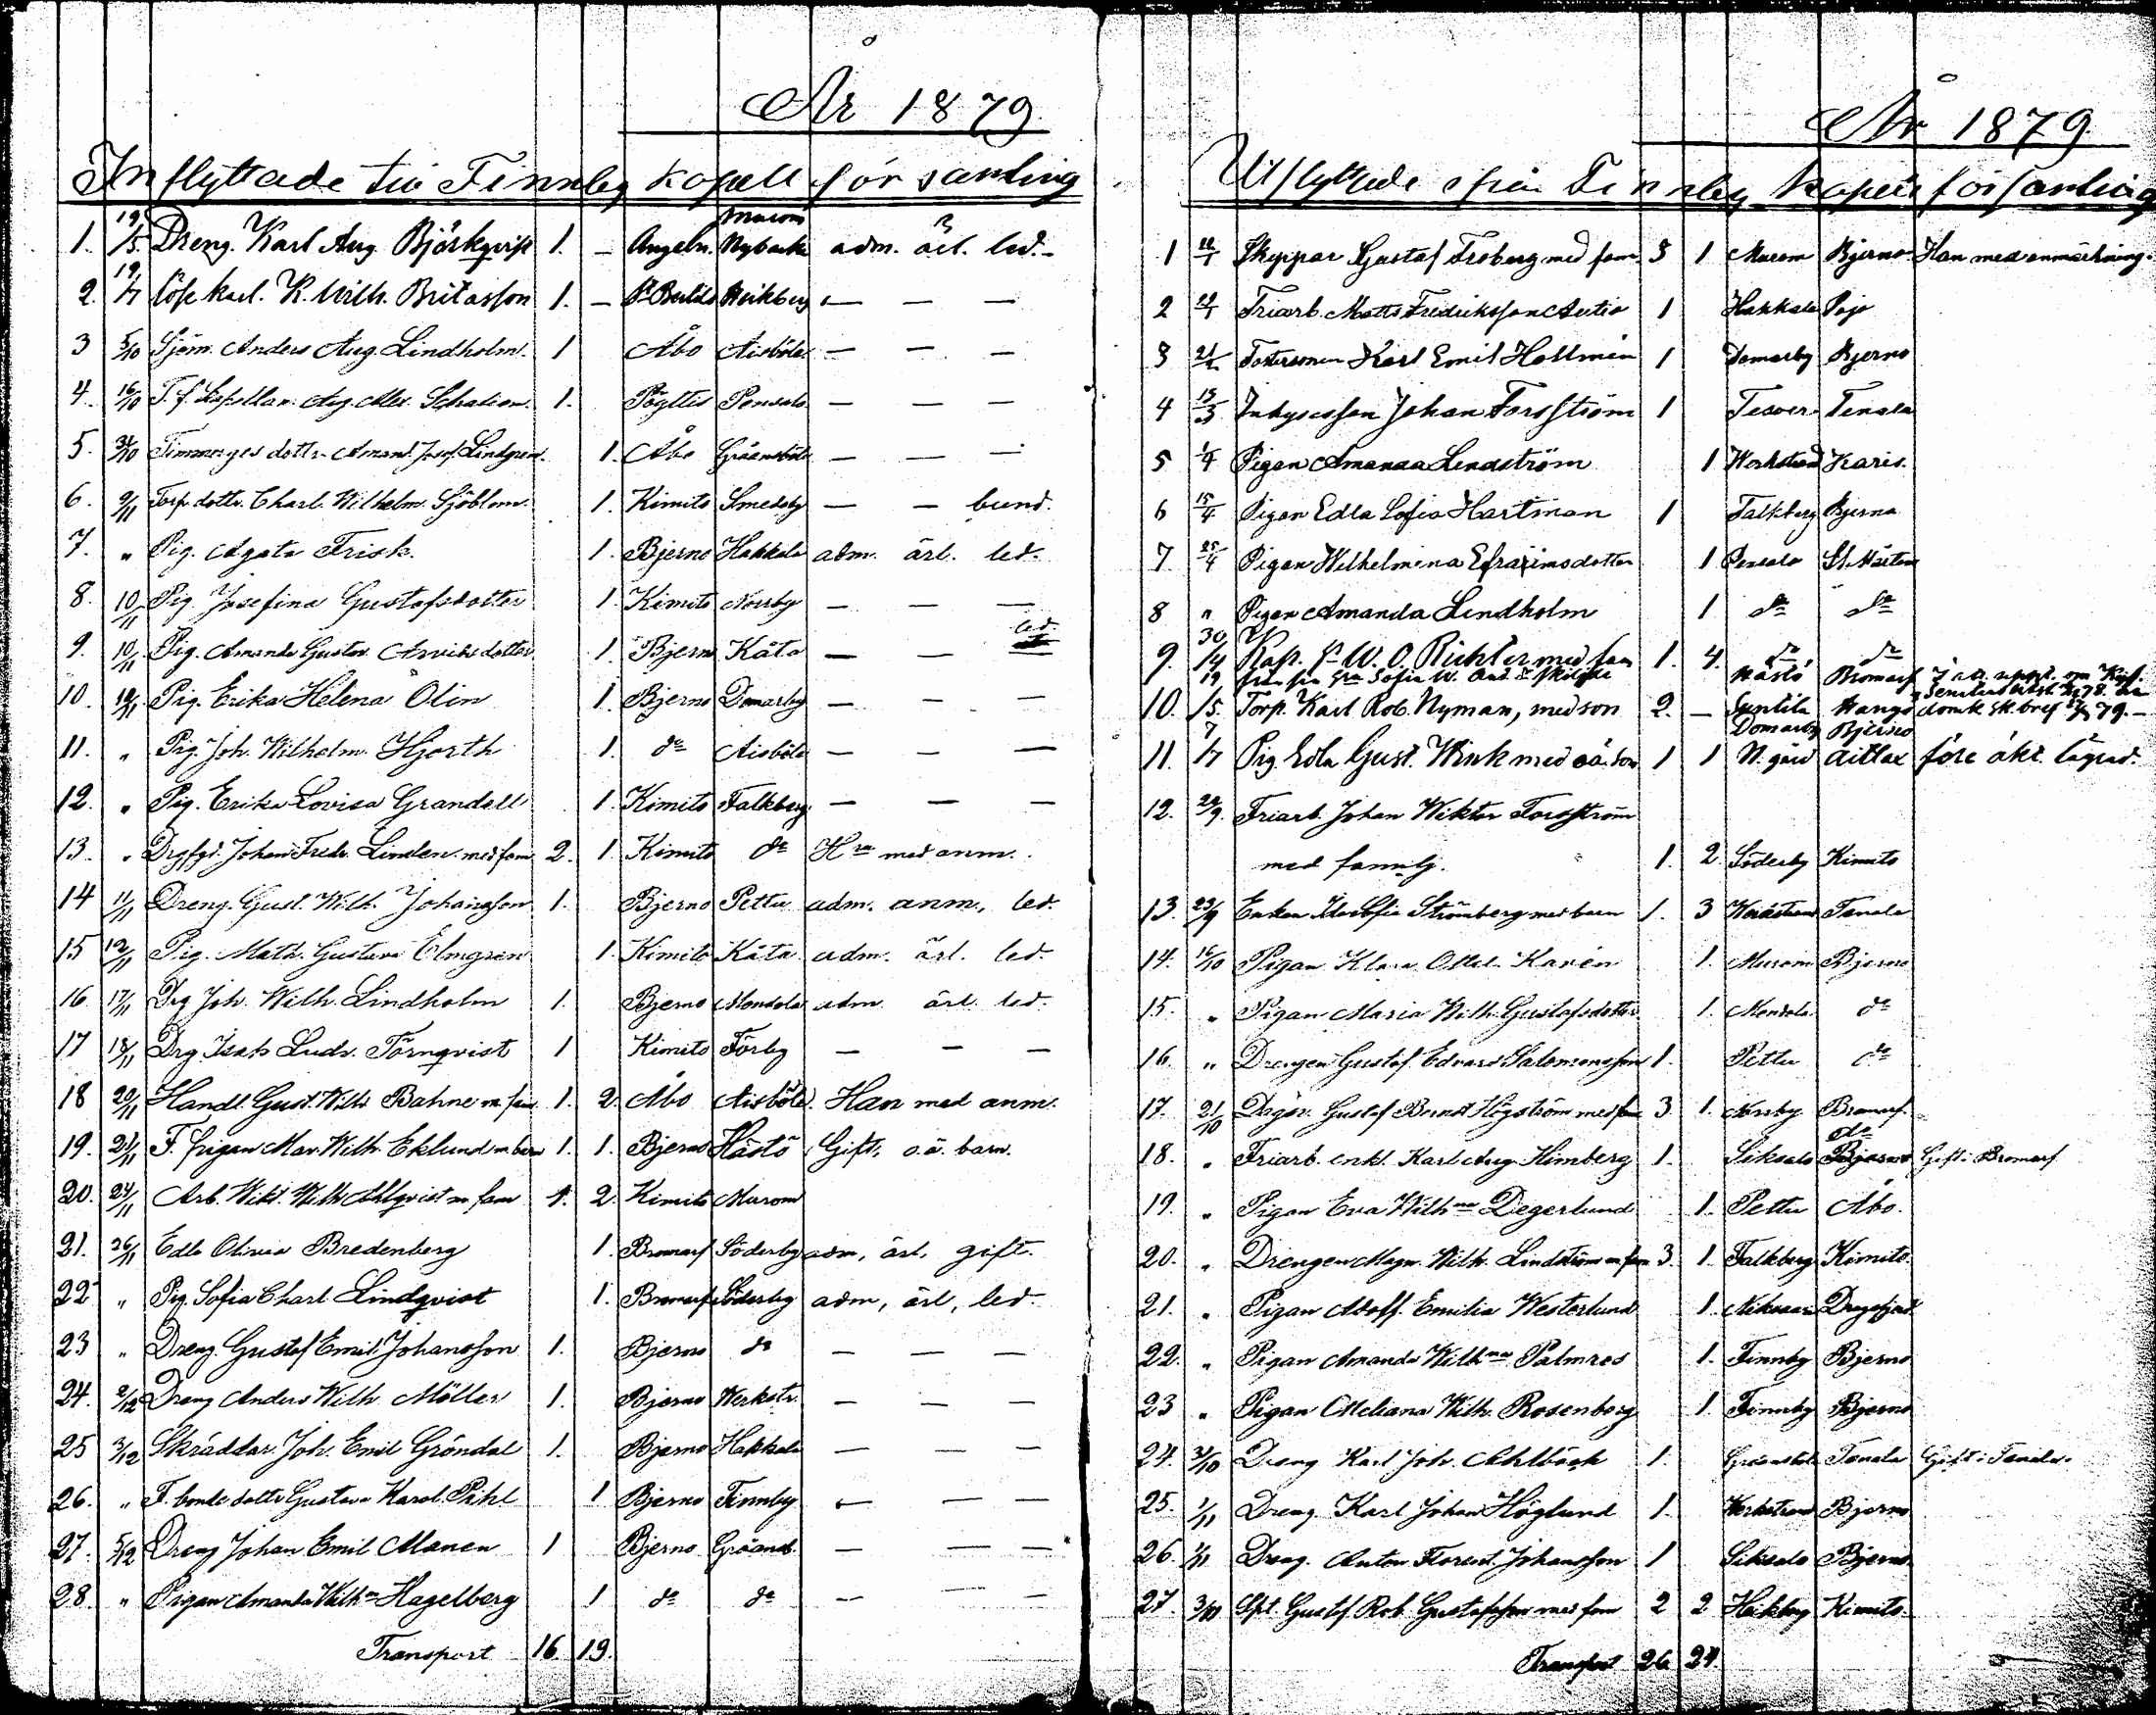 År 1879.
Inflyttade till Finnby kapell församling
1. 19/5 Dreng. Karl Aug. Björkqvist 1. — Angeln. Nybacka adm. ärl. led. –
2. 19/7 Lösk. karl. K. Wilh. Britasson 1. — — — —
3 5/10 Sjöm. Anders Aug. Lindholm. 1 Åbo Aisböle — — —
4. 16/10 T. f. Kapellan. Aug. Alex. 1. Pensalo — — —
5. 31/10 dottr. Amand. Josef. Lindgren. 1. Åbo Gräensböle — — —
6. 9/11 Torp. dottr. Charl. Wilhelm. Sjöblom. 1. Kimito Smedsby — — bund.
7. " Pig. Agata Frisk. 1. Bjerno Hakkala adm. ärl. led.
8. 10/11 Pig. Josefina Gustafsdotter 1. Kimito Norrby — — —
9. 10/11 Pig. Amanda Gustav. Arvidsdotter 1. Bjerno Kåta — — led.
10. 10/11 Pig. Erika Helena Olin 1. Bjerno Domarby — — —
11. " Pig. Joh. Wilhelm. Hjorth 1. do Aisböle — — —
12. " Pig. Erika Lovisa Grandell 1. Kimito Falkberg — — —
13. " Johan Fredr. Linden. med fam. 2. 1. Kimito do Hn med anm.
14 11/11 Dreng. Gust. Wilh. Johansson 1. Bjerno Pettu adm. anm., led.
15 12/11 Pig. Math. Gustava Elmgren 1. Kimito Kåta adm. ärl. led.
16. 17/11 Drg Joh. Wilh. Lindholm 1. Bjerno Mondola adm. ärl. led.
17 18/11 Drg Isak Ludv. Törnqvist 1 Kimito Förby — — —
18 20/11 Handl. Gust. Wilh. Bahne m. fam 1. 2. Åbo Aisböle. Han med anm.
19. 21/11 F. pigan Mar. Wilh. Eklund m. barn 1. 1. Bjerno Hästö Gift. o.ä. barn.
20. 24/11 Arb. Wikt. Wilh. Ahlqvist m. fam 1. 2. Kimito Murom
21. 26/11 Edla Olivia Bredenberg 1. Bromarf Söderby adm, ärl. gift.
22 " Pig. Sofia Charl. Lindqvist 1. Bromarf Söderby adm, ärl, led.
23 " Dreng. Gustaf Emil Johansson 1. Bjerno do — — —
24. 2/12 Dreng Anders Wilh. Möller 1. Bjerno Werkstr. — — —
25 3/12 Skräddar. Joh. Emil Gröndal 1. Bjerno Hakkala — — —
26. " F. bonde dottr Gustava Karol. Pihl 1 Bjerno Finnby — — —
27. 5/12 Dreng Johan Emil Manen 1 Bjerno Gräensb. — — —
28. " Pigan Amanda Wilhna Hagelberg 1 do do — — —
Transport 16 19.
År 1879.
Utflyttade från Finnby kapell församling
1 Skeppar Gustaf Froberg med fam 3 1 Murom Bjerno Han med anmärkning.
2 Friarb. Matts Fredriksson Autio 1 Hakkala Pojo
3 Karl Emil Hellmén 1 Domarby Bjerno
4 15/3 Inhysesson Johan Forsström 1 Tenala
5 1/4 Pigan Amanda Lindström 1 Werkstrand Karis.
6 15/4 Pigan Edla Sofia Hartman 1 Falkberg Bjerna
7 25/4 Pigan Wilhelmina Efraimsdotter 1 Pensalo St. Mårtens
8 " Pigan Amanda Lindholm 1 do do
9. 30/4 Kap. W. O. Richter med fam 1. 4. do do
från Sofia W. skild Hästö Bromarf
10. 19/5. Torp. Karl Rob. Nyman, med son 2. — Hangö domk. sk. bref 79. –
Domarby Bjerno
11. 7/7 Pig. Edla Gust. Wink med oä. son 1 1 N. gård Aitlax före äkt. lägrad.
12. 22/9. Friarb. Johan Wiktor Forsström
med familj. 1. 2. Söderby Kimito
13. 23/9 Enkan Sofia Strömberg med barn 1. 3 Werkstrand Tenala
14. 16/10 Pigan Klara Karén 1. Murom Bjerno
15. " Pigan Maria Wilh. Gustafsdotter 1. Mondola do
16. " Drengen Gustaf Edvard Salomonsson 1. Pettu do
17. 21/10 Gustaf Bernst Högström med fam 3. 1. Norrby Bromarf.
do
18. " Friarb. enkl. Karl Aug. Himberg 1. Siksalo Bjerno Gift i Bromarf
19. " Pigan Eva Wilhna Degerlund 1. Pettu Åbo.
20. " Drengen Magn. Wilh. Lindström m. fam 3. 1. Falkberg Kimito.
21. " Pigan Adolf. Emilia Westerlund 1. Dragsfjärd
22. " Pigan Amanda Wilhna Palmros 1. Finnby Bjerno
23 " Pigan Wilh. Rosenberg 1. Finnby Bjerno
24. 31/10 Dreng Karl Joh. Ahlbäck 1. Gräensböle Tenala Gift i Tenala.
25. 1/11 Dreng Karl Johan Höglund 1. Werkstrand Bjerno
26. 1/11 Dreng. Anton Florent. Johansson 1 Siksalo Bjerno
27. 3/11 Gustaf Rob. Gustafsson med fam 2 2 Kimito.
Transport 26 24.